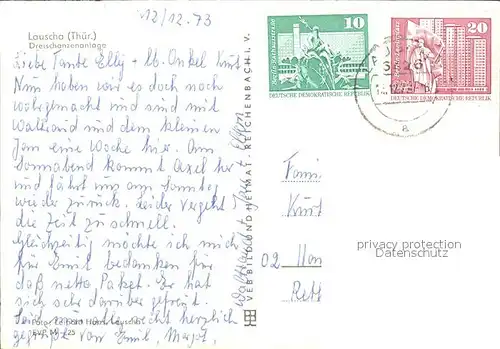 12/12.73
Lauscha (Thür.)
Dreischanzenanlage
Liebe Tante Elly + lb. Onkel Kurt
Nun haben wir es doch noch
wahrgemacht und sind mit
Waltraud und dem kleinen
Jan eine Woche hier. Am
Sonnabend kommt Axel her
und fährt uns am Sonntag
wieder zurück. Leider vergeht
die Zeit zu schnell.
Gleichzeitig möchte ich mich
für Emil bedanken für
daß nette Paket. Er hat
sich sehr darüber gefreut.
Seid nun recht herzlich
gegrüßt von Emil, Margot,
Waltraud
VEB BILD UND HEIMAT · REICHENBACH I. V.
10
DEUTSCHE DEMOKRATISCHE REPUBLIK
20
DEUTSCHE DEMOKRATISCHE REPUBLIK
a
Fami
Kurt
02
privacy protection
Datenschutz